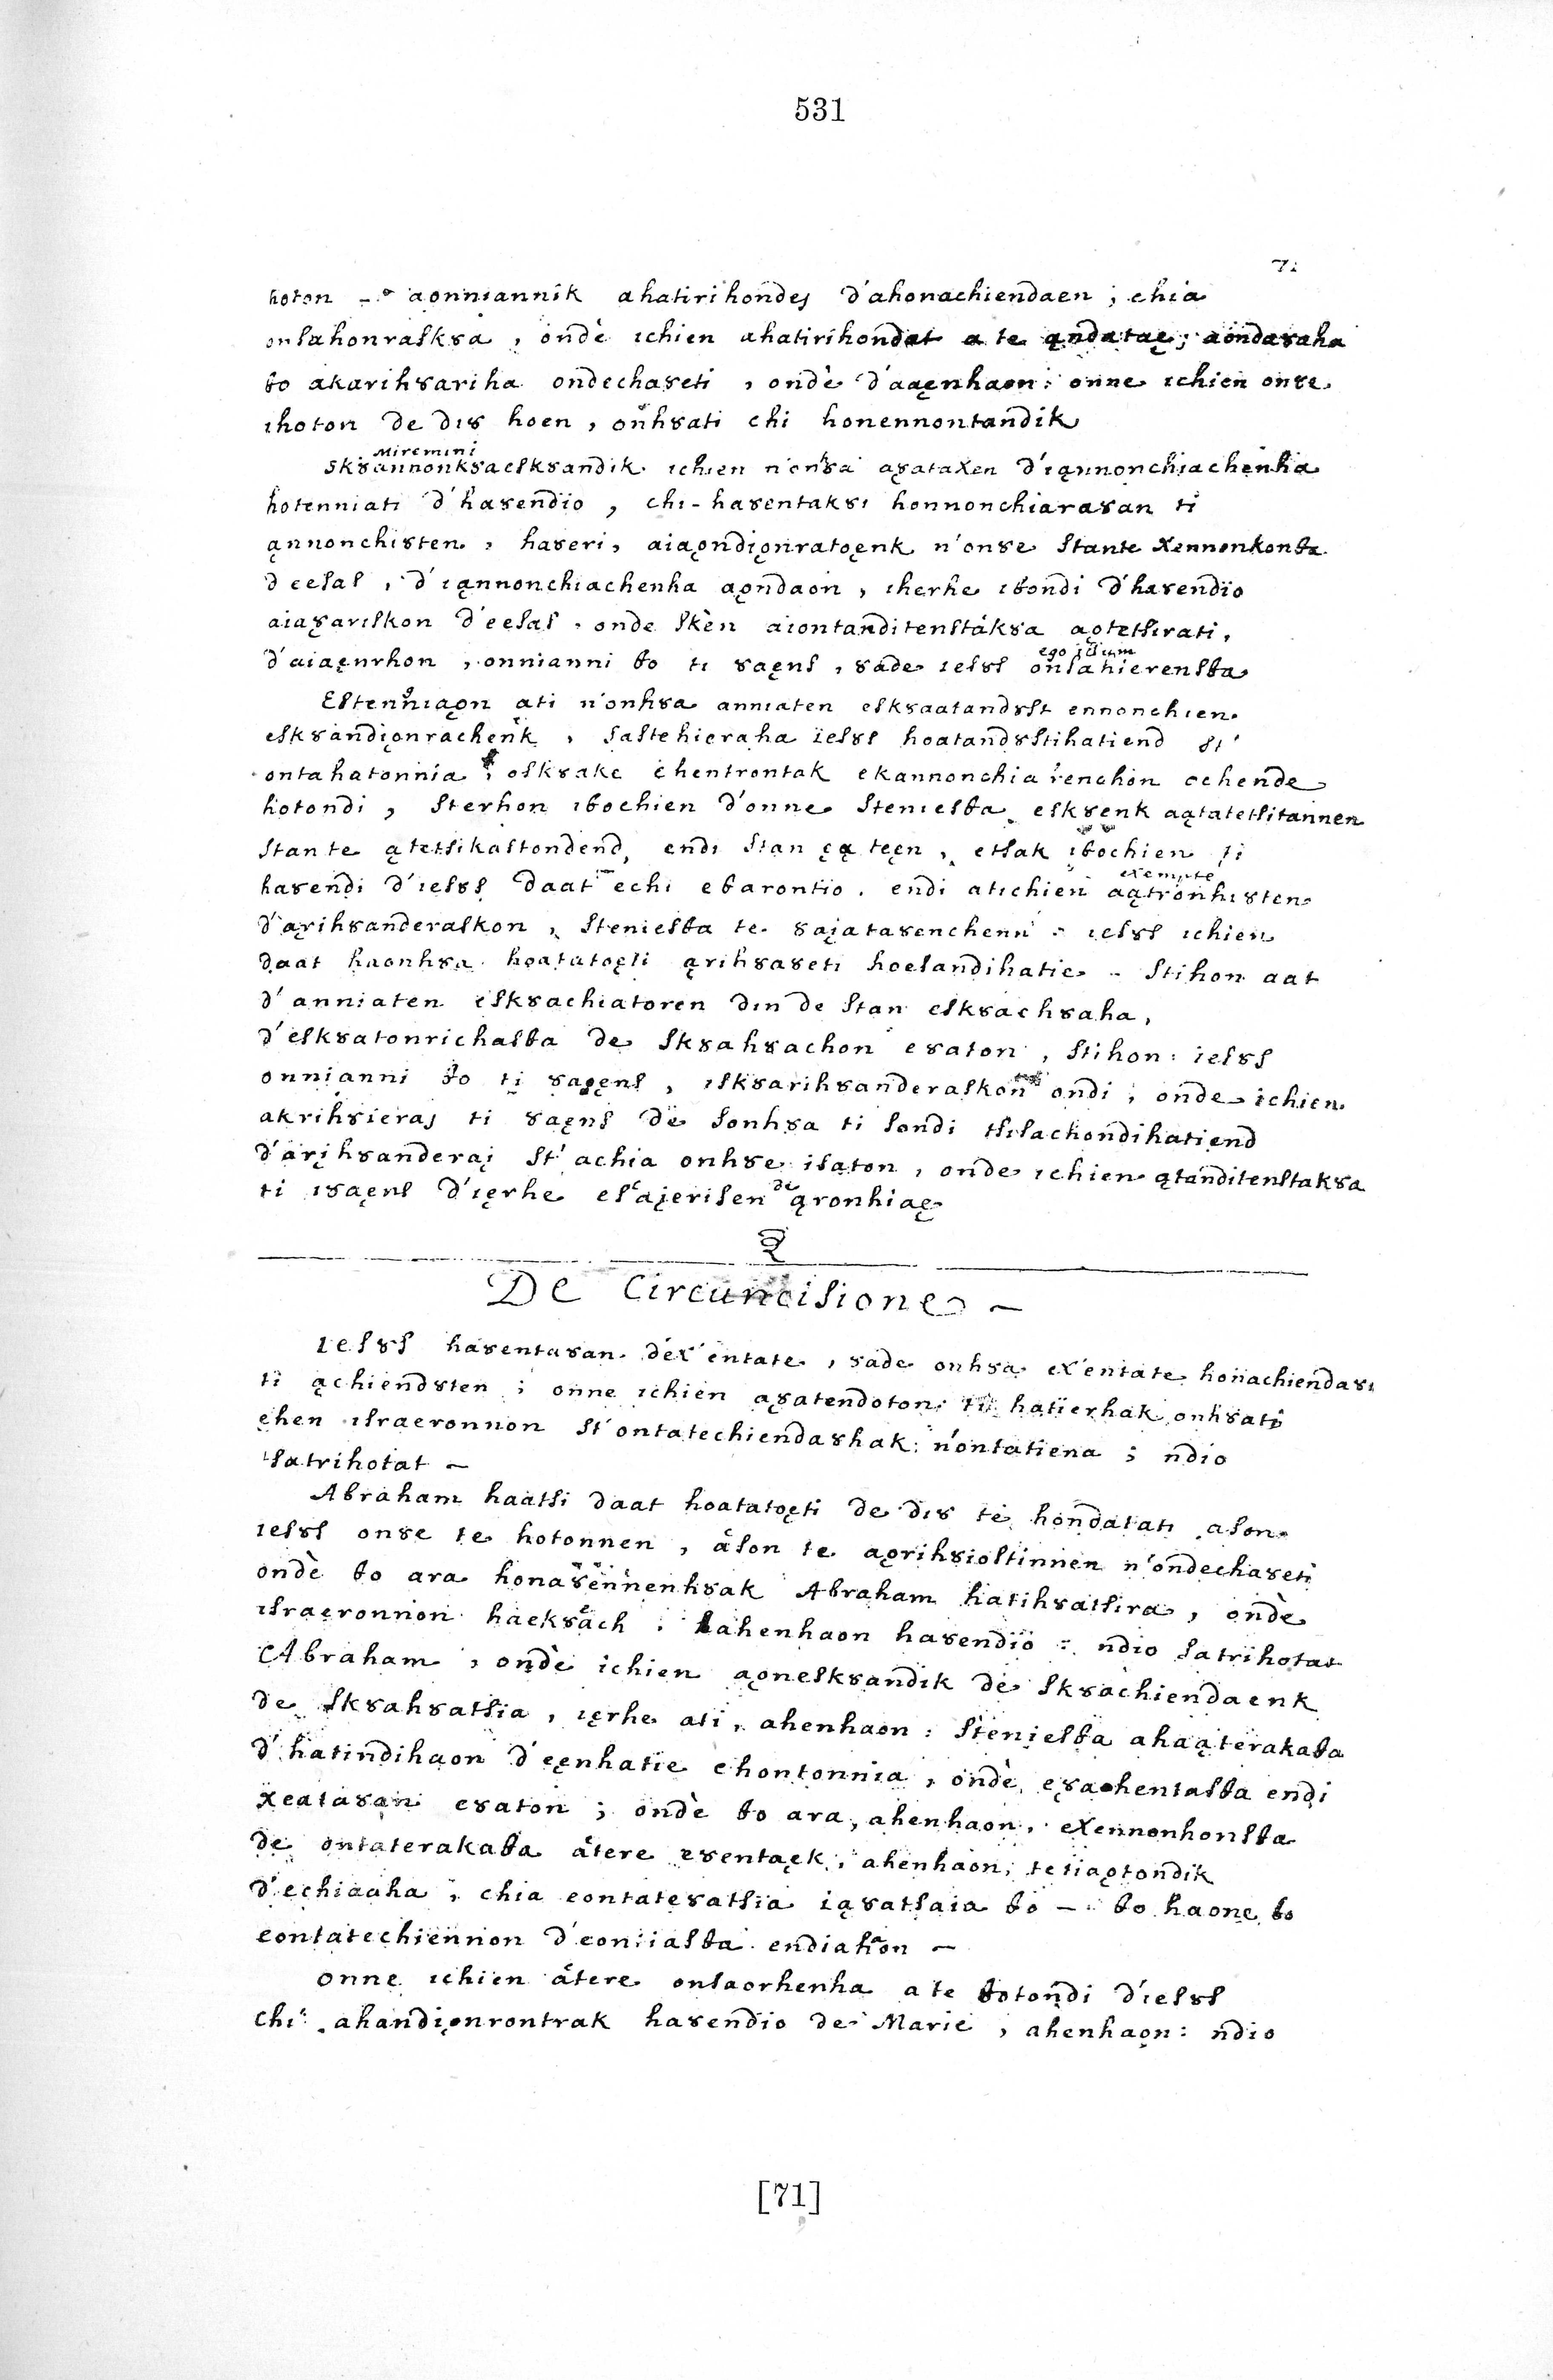 531
71
hoton - aonniannik ahatirihondej d'ahonachiendaen ; chia
onsahonrask8a , ondè ichien ahatirihondat a te ąndataę ; aonda8aha
ȣo akarih8ariha ondecha8eti , ondè d'aaęnhaon : onne ichien on8e
ihoton de di8 hoen , onh8ati chi honennontandik
miremini
sk8annonk8aesk8andik ichien n'on8a a8ataxen d' iąnnonchiachenha
hotenniati d'ha8endio , chi-ha8entak8i honnonchiara8an ti
ąnnonchi8ten , ha8eri , aiaǫndiǫnratoęnk n'on8e stante xennonkonȣa
d'eesas , d'iąnnonchiachenha aǫndaon , iherhe iȣondi d'ha8endio
aia8ariskon d'eesas , onde skèn aiontanditenstak8a aǫtetsirati ,
ego illum
d'aiaęnrhon , onnianni ȣo ti 8aęns , 8ade ies8s onsahierensȣa
Estenniaǫn ati n'onh8a anniaten esk8aatand8st ennonchien
esk8andiǫnrachenk , sastehieraha ies8s hoatand8stihatiend st'
ontahatonnia , osk8ake ehentrontak ekannonchiarenchon ochende
hotondi , sterhon iȣochien d'onne steniesȣa esk8enk aątatetsitannen
stante ątetsikastondend , endi stan ęą teęn , etsak iȣochien ti
exempte
ha8endi d'ies8s daat echi eȣarontio . endi atichien aątronhi8ten
d'ąrih8anderaskon , steniesȣa te 8ajata8enchenn : ies8s ichien
daat haonh8a hoatatoęti ąrih8a8eti hoesandihatie - stihon aat
d'anniaten esk8achiatoren din de stan esk8ach8aha ,
d'esk8atonrichasȣa de sk8ah8achon e8aton , stihon : ies8s
onnianni ȣo ti 8aęns , isk8arih8anderaskon ondi ; onde ichien
akrih8ieraj ti 8aęns de sonh8a ti sondi tsisachondihatiend
d'arih8anderaj st'achia onh8e isaton , onde ichien ątanditenstak8a
de
ti i8aęns d'ięrhe esajerisen ąronhiaę
2
De Circuncisione -
ies8s ha8enta8an dex'entate , 8ade onh8a ex'entate honachienda8i
ti ąchiend8ten ; onne ichien a8atendoton ti hatierhak onh8ati
ehen israeronnon st'ontatechienda8hak n'ontatiena ; ndio
satrihotat -
Abraham haatsi daat hoatatoęti de di8 te hondatati ason
ies8s on8e te hotonnen , ason te aǫrih8iostinnen n'ondecha8eti
ondè ȣo ara hona8ennenh8ak Abraham hatih8atsira , ondè
israeronnon haek8ach . ahenhaon ha8endio : ndio satrihotat
Abraham , ondè ichien aǫnesk8andik de sk8achiendaenk
de sk8ah8atsia , ięrhe ati , ahenhaon : steniesȣa ahaąterakaȣa
d'hatindihaon d'eęnhatie ehontonnia , ondè e8aohentasȣa endi
xeata8an e8aton ; ondè ȣo ara , ahenhaon , exennonhonsȣa
de ontaterakaȣa atere e8entaęk , ahenhaon , tetiaǫtondik
d'echiaaha , chia eontate8atsia ią8atsaia ȣo - ȣo haone ȣo
eontatechiennon d'eoniiasȣa endiahaon -
onne ichien atere onsaorhenha a te ȣotondi d'ies8s
chi ahandiǫnrontrak ha8endio de Marie , ahenhaon : ndio
[71]